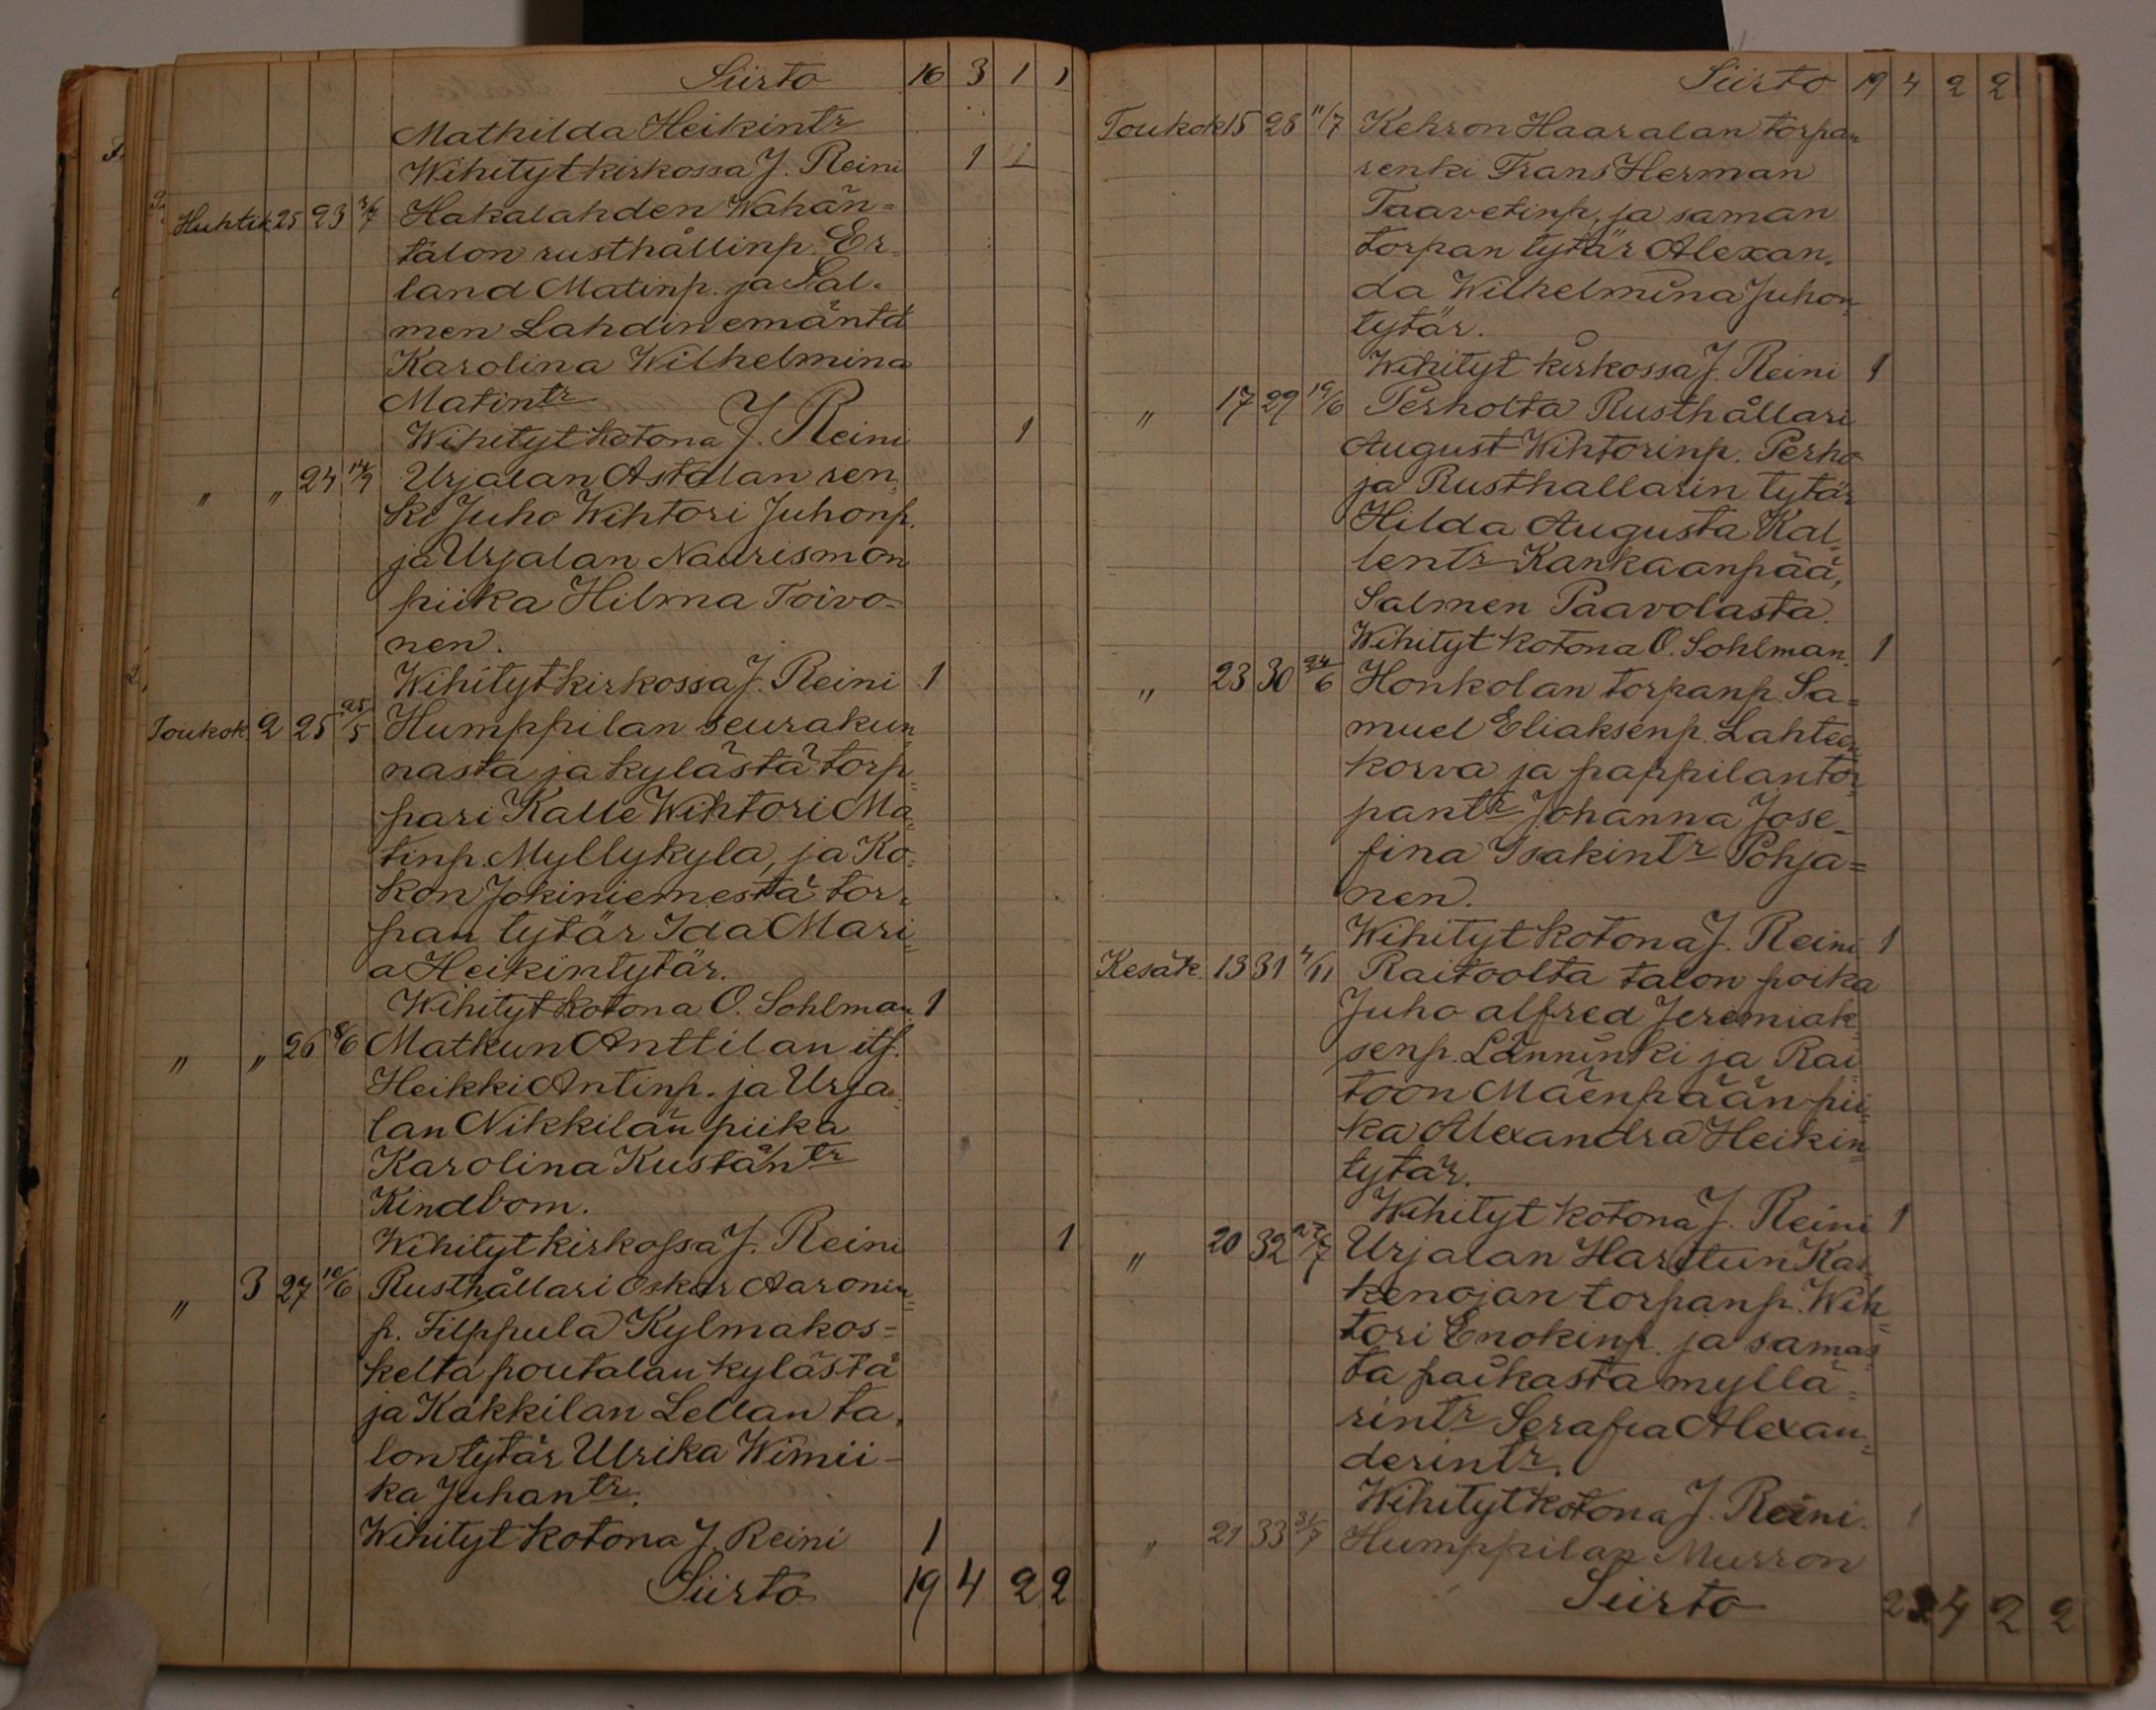 Siirto 16 3 1 1
Mathilda Heikintr
Wihityt kirkossa J. Reini 1 1
Huhtik 25 23 Hakalahden Wahän=
talon rusthållinp. Er-
land Matinp. ja Sal-
men Lahdin emäntä
Karolina Wilhelmina
Matintr
Wihityt kotona J. Reini 1
" " 24 14/9 Urjalan Astalan ren-
ki Juho Wihtori Juhonp.
ja Urjalan Naurismon
piika Hilma Toivo-
nen.
Wihityt kirkossa J. Reini 1
Toukok. 2 25 25/5 Humppilan seurakun-
nasta ja kylästä torp-
pari Kalle Wihtori Ma-
tinp. Myllykyla, ja Ko-
kon Jokiniemestä tor-
pan tytär Ida Mari-
a Heikintytär.
Wihityt kotona O. Sohlman 1
" " 26 8/6 Matkun Anttilan itf.
Heikki Antinp. ja Urja-
lan Nikkilän piika
Karolina Kustäntr
Kindbom.
Wihityt kirkossa J. Reini 1
" 3 27 10/6 Rusthållari Oskar Aaronin-
p. Filppula Kylmakos=
kelta poutalan kylästä
ja Kakkilan Lellan ta-
lon tytär Ulrika Wimii-
ka Juhantr.
Wihityt kotona J. Reini 1
Siirto 19 4 2 2
Siirto 19 4 2 2
Toukok 15 28 11/7 Kehron Haaralan torpan
renki Frans Herman
Taavetinp, ja saman
torpan tytär Alexan-
da Wilhelmina Juhon-
tytär.
Wihityt kirkossa J. Reini 1
" 17 29 19/6 Perholta Rusthållari
August Wihtorinp. Perho
ja Rusthallarin tytär
Hilda Augusta Kal-
lentr Kankaanpää,
Salmen Paavolasta.
Wihityt kotona O. Sohlman. 1
" 23 30 24/6 Honkolan torpanp. Sa=
muel Eliaksenp. Lahteen-
korva ja pappilan tor-
pantr Johanna Jose-
fina Isakintr Pohja=
nen.
Wihityt kotona J. Reini 1
Kesäk. 13 31 4/11 Raitoolta talon poika
Juho alfred Jeremiak-
senp. Länninki ja Rai-
toon Mäenpään pii-
ka Alexandra Heikin-
tytär.
Wihityt kotona J. Reini 1
" 20 32 27/7 Urjalan Harttun Kas-
kenojan torpanp. Wih-
tori Enokinp. ja samas-
ta paikasta myllä-
rintr Serafia Alexan-
derintr.
Wihityt kotona J. Reini. 1
" 21 33 31/7 Humppilan Murron
Siirto 4 2 2